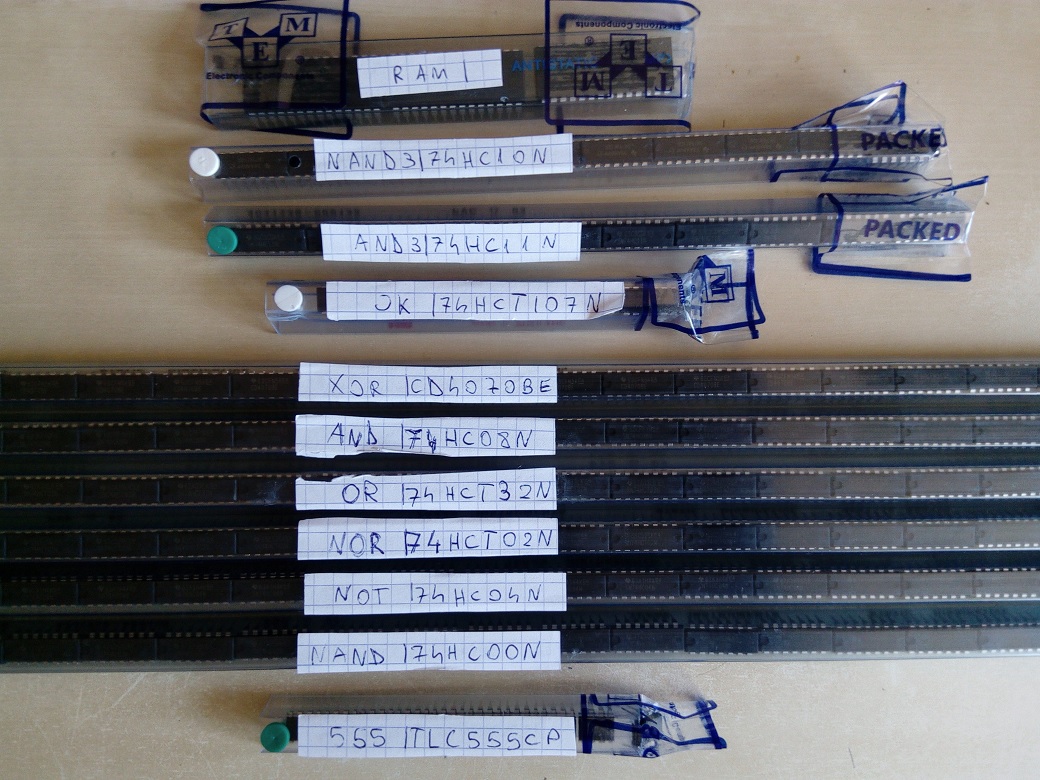 TME
Electronic Components
RAM |
ANTISTATIC
Electronic Components
TME
NAND3|74HC10N
PACKED
AND3|74HC11N
PACKED
JK |74HCT107N
M
XOR |CD4070BE
AND |74HC08N
OR |74HCT32N
NOR |74HCT02N
NOT |74HC04N
NAND |74HC00N
555 |TLC555CP